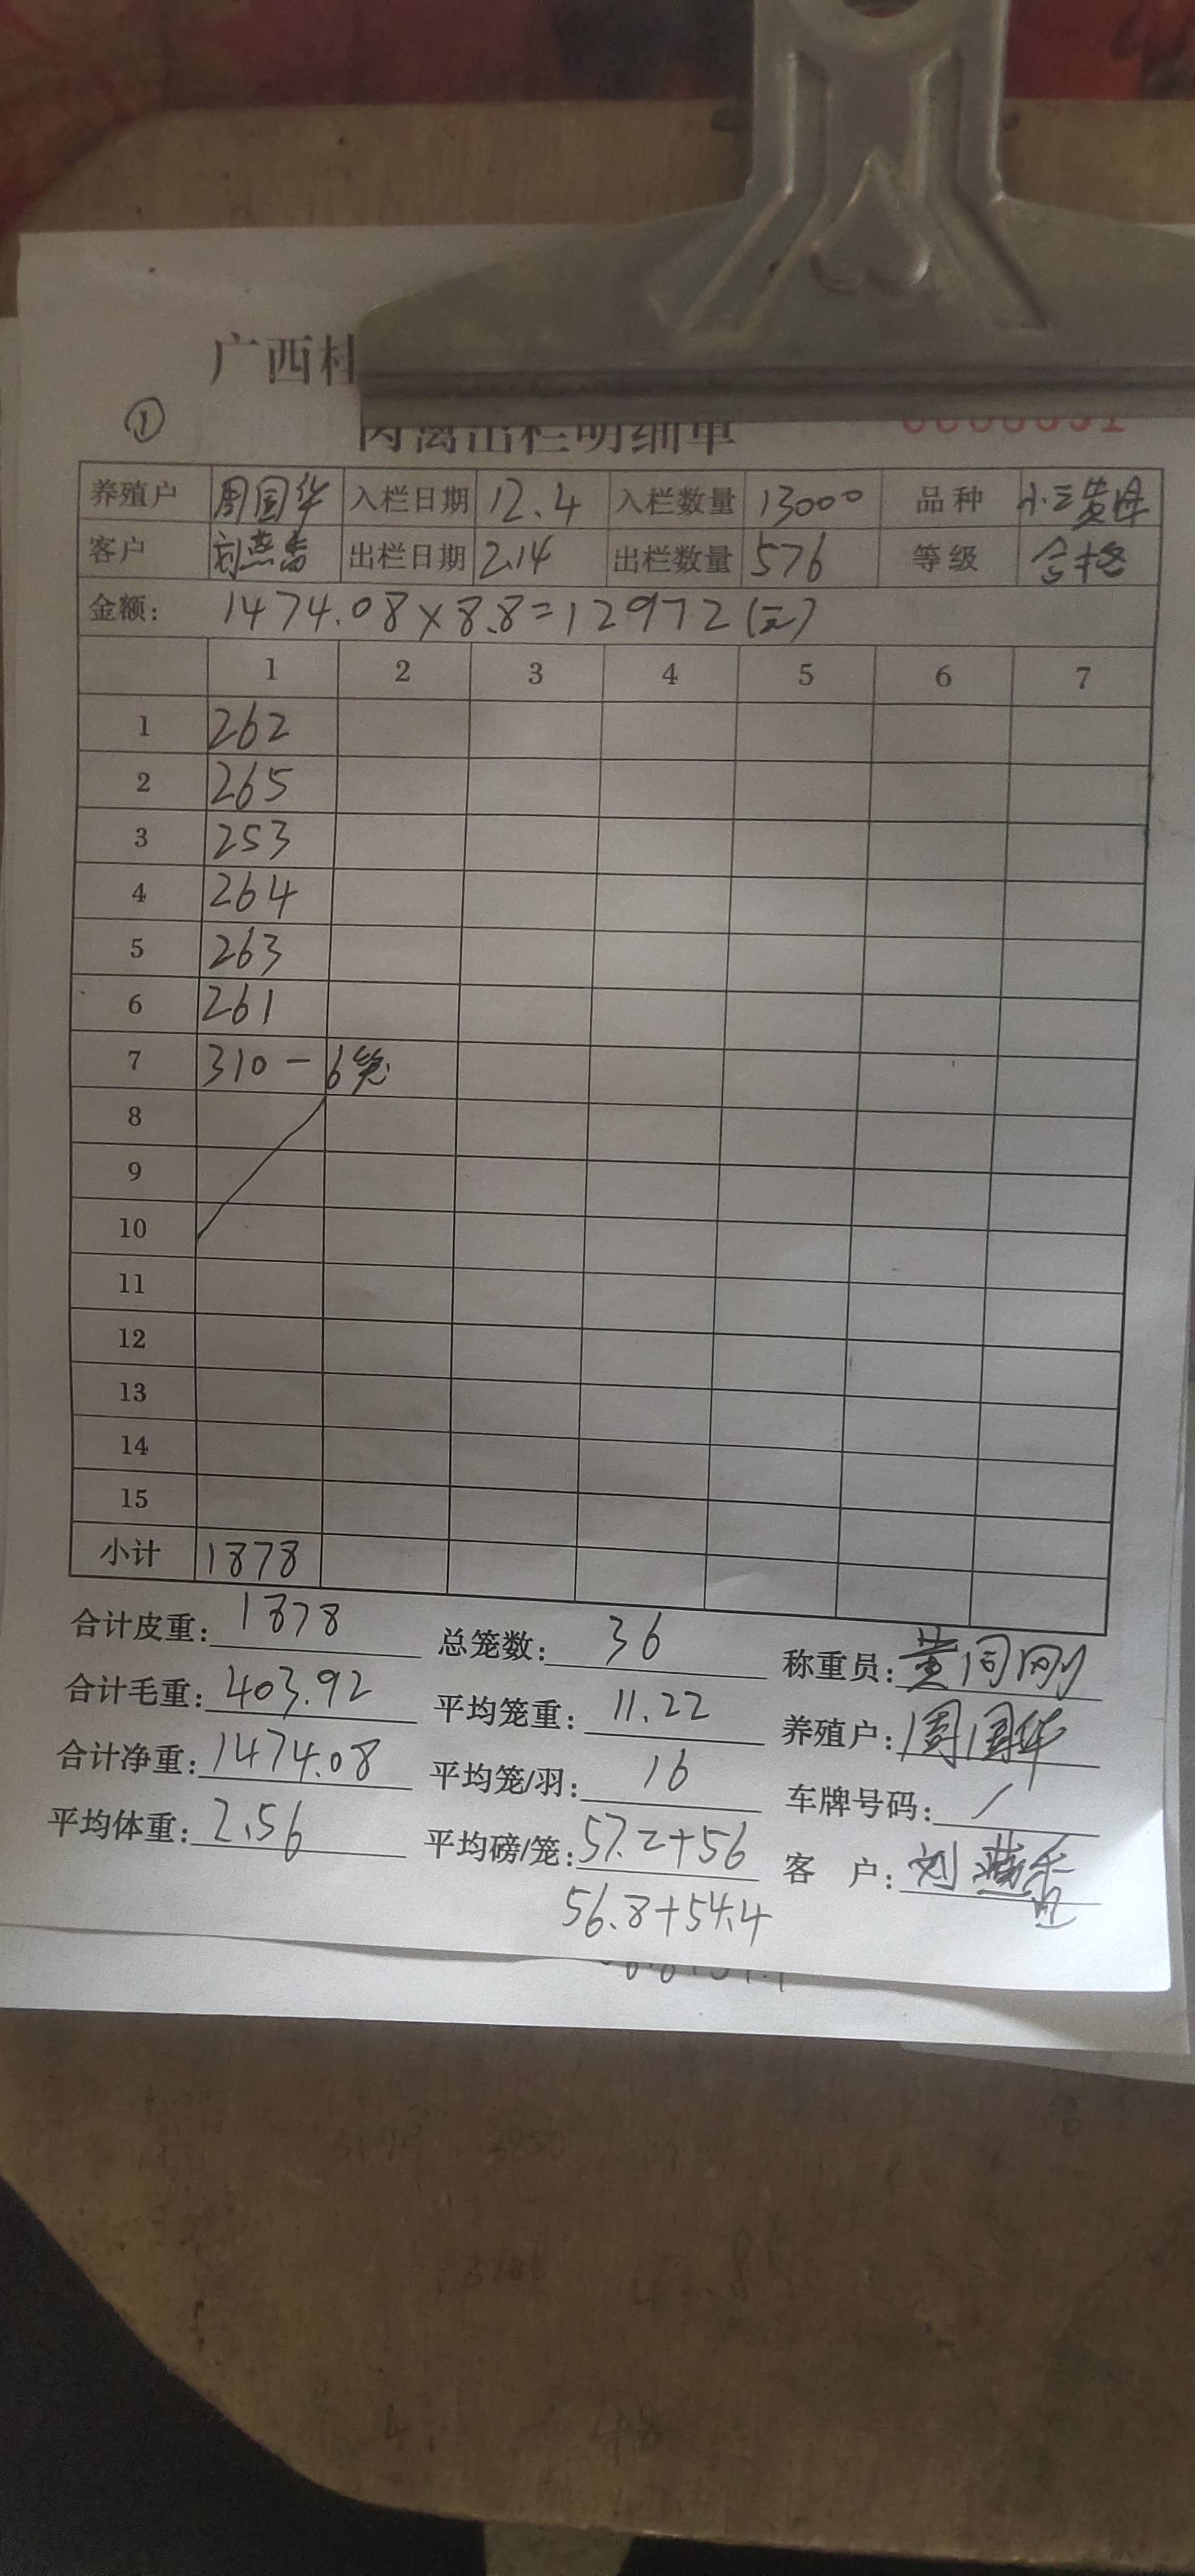 广西桂
①
肉禽出栏明细单
养殖户 周国华 入栏日期 12.4 入栏数量 13000 品种 小三黄母
客户 刘燕香 出栏日期 2.14 出栏数量 576 等级 合格
金额: 1474.08×8.8=12972(元)
1 2 3 4 5 6 7
1 262
2 265
3 253
4 264
5 263
6 261
7 310-6笼
8
9
10
11
12
13
14
15
小计 1878
合计皮重: 1878 总笼数: 36 称重员: 黄同刚
合计毛重: 403.92 平均笼重: 11.22 养殖户: 周国华
合计净重: 1474.08 平均笼/羽: 16 车牌号码: /
平均体重: 2.56 平均磅/笼: 57.2+56 客 户: 刘燕香
56.8+54.4